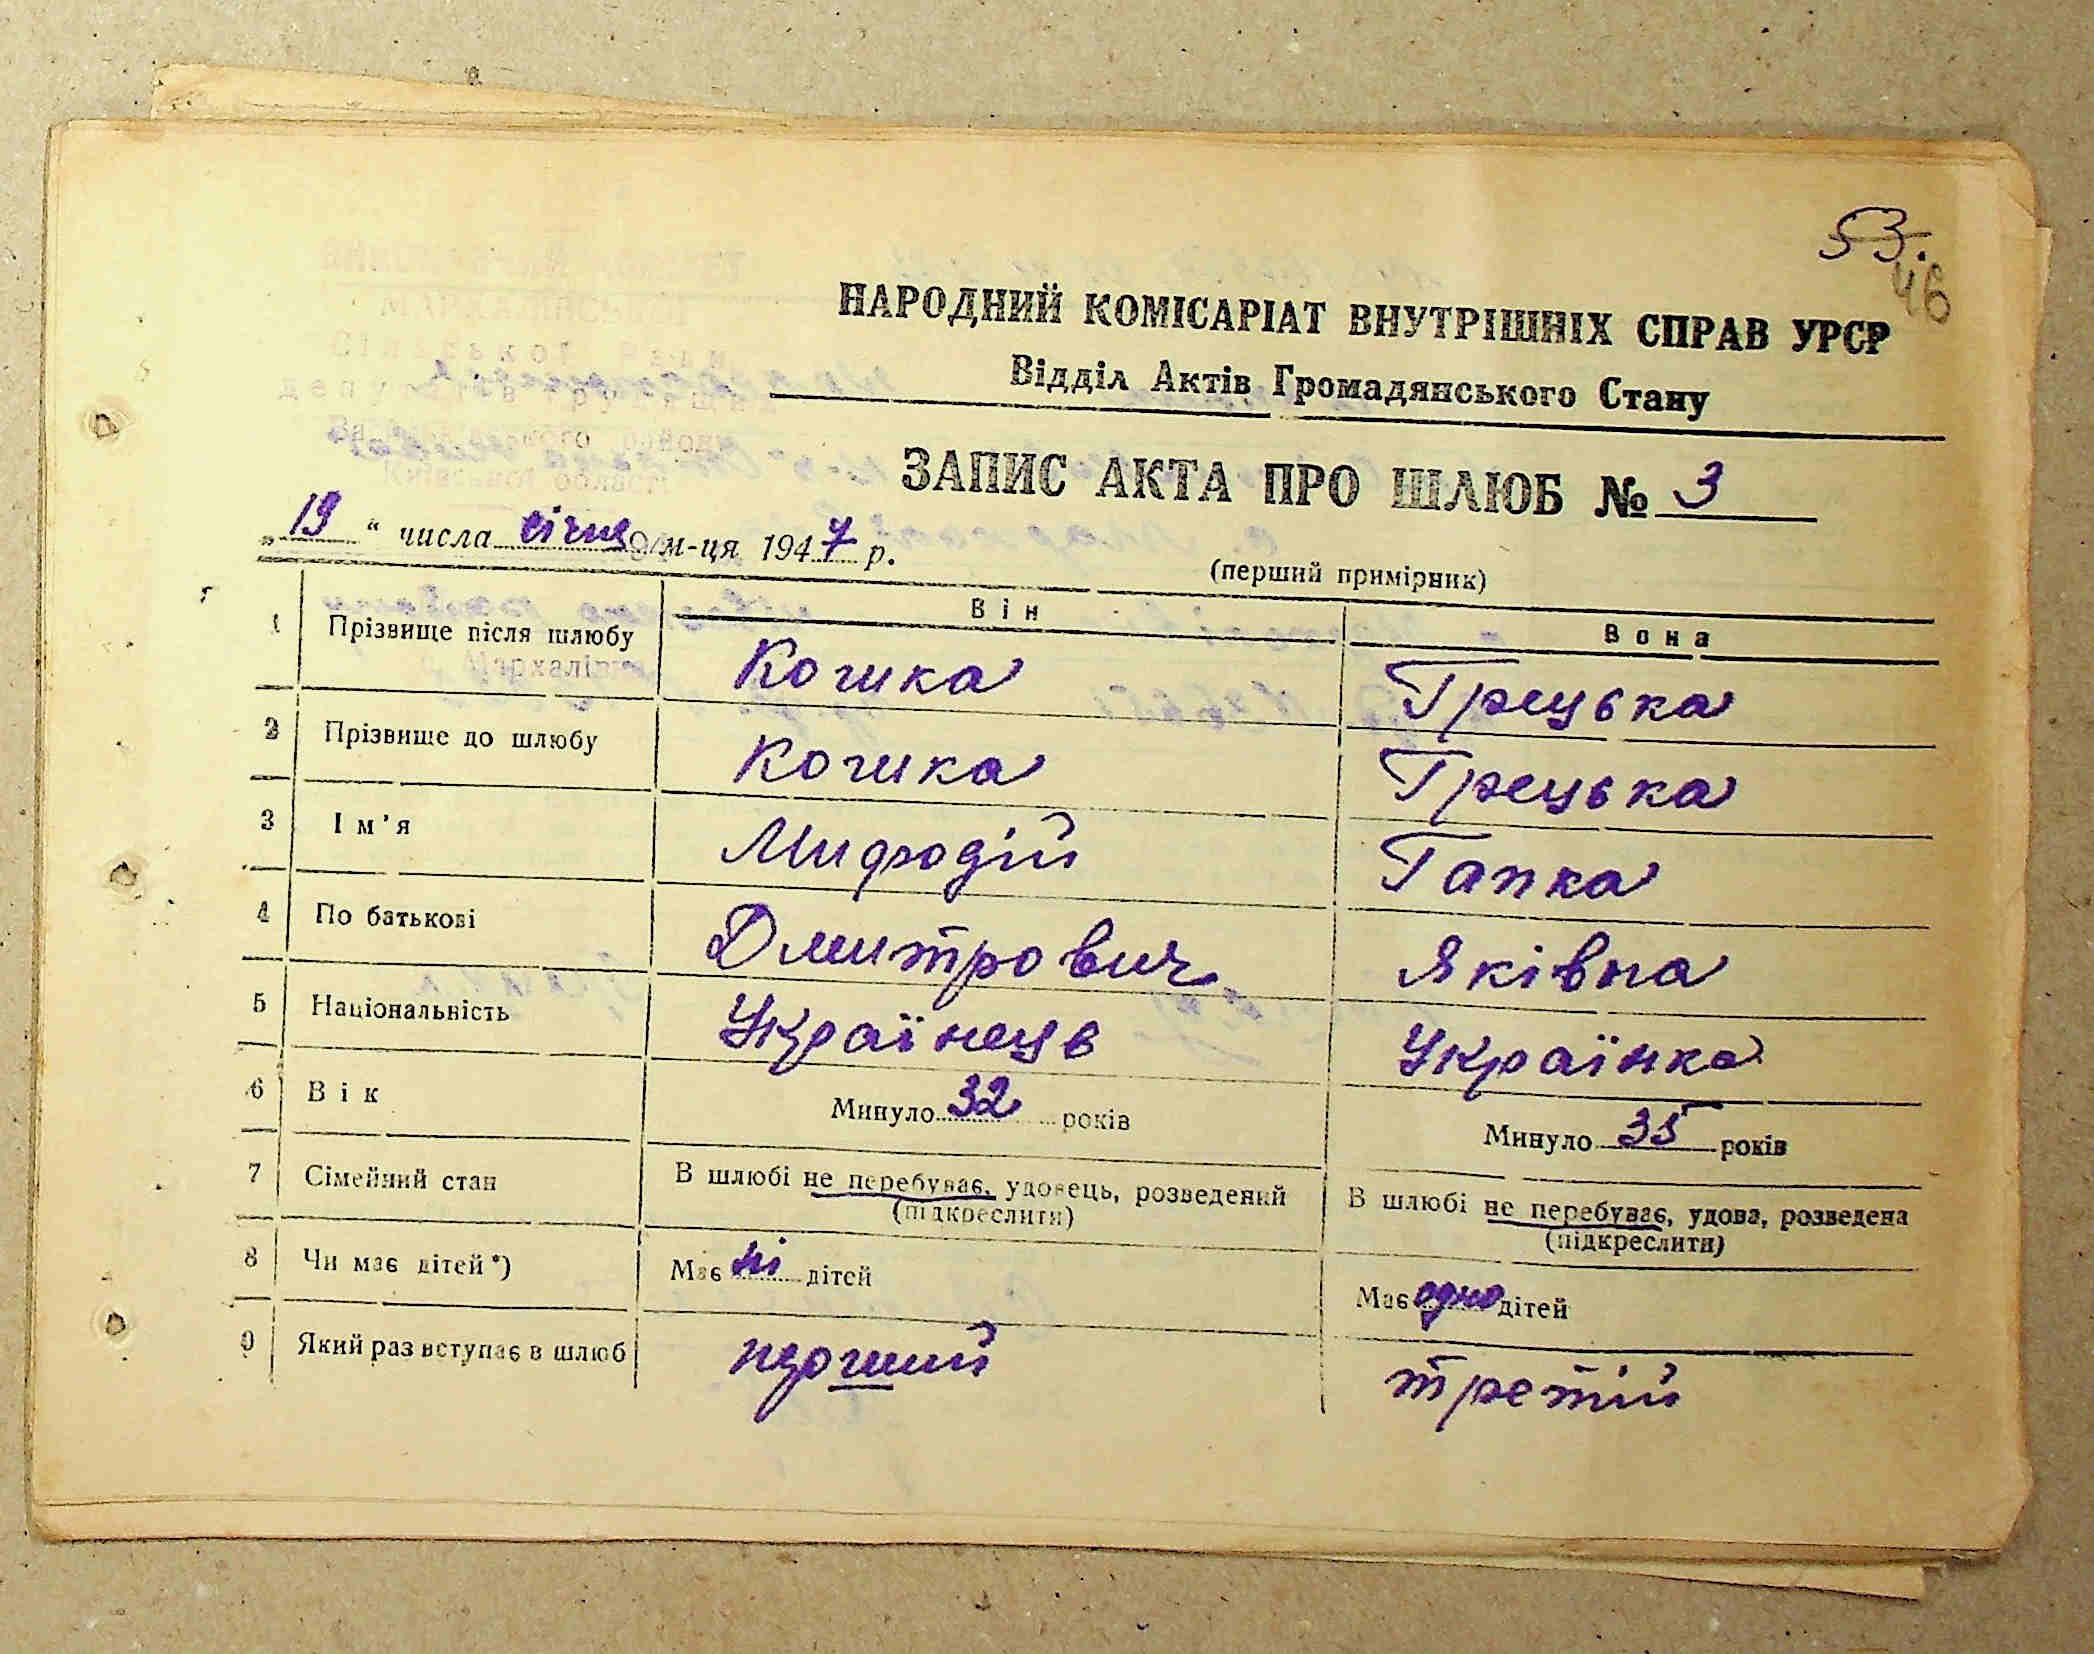 53.
46
НАРОДНИЙ КОМІСАРІАТ ВНУТРІШНІХ СПРАВ УРСР
Відділ Актів Громадянського Стану
ЗАПИС АКТА ПРО ШЛЮБ № 3
„ 19 “ числа січня м-ця 1947 р.
(перший примірник)
Він Вона
1 Прізвище після шлюбу Когика Грецька
2 Прізвище до шлюбу Когика Грецька
3 Ім'я Мифодій Гапка
4 По батькові Дмитрович Яківна
5 Національність Українець Українка
6 Вік Минуло 32 років Минуло 35 років
7 Сімейний стан В шлюбі не перебуває, удовець, розведений В шлюбі не перебуває, удова, розведена
(підкреслити) (підкреслити)
8 Чи має дітей*) Має ні дітей Має одно дітей
9 Який раз вступає в шлюб третій